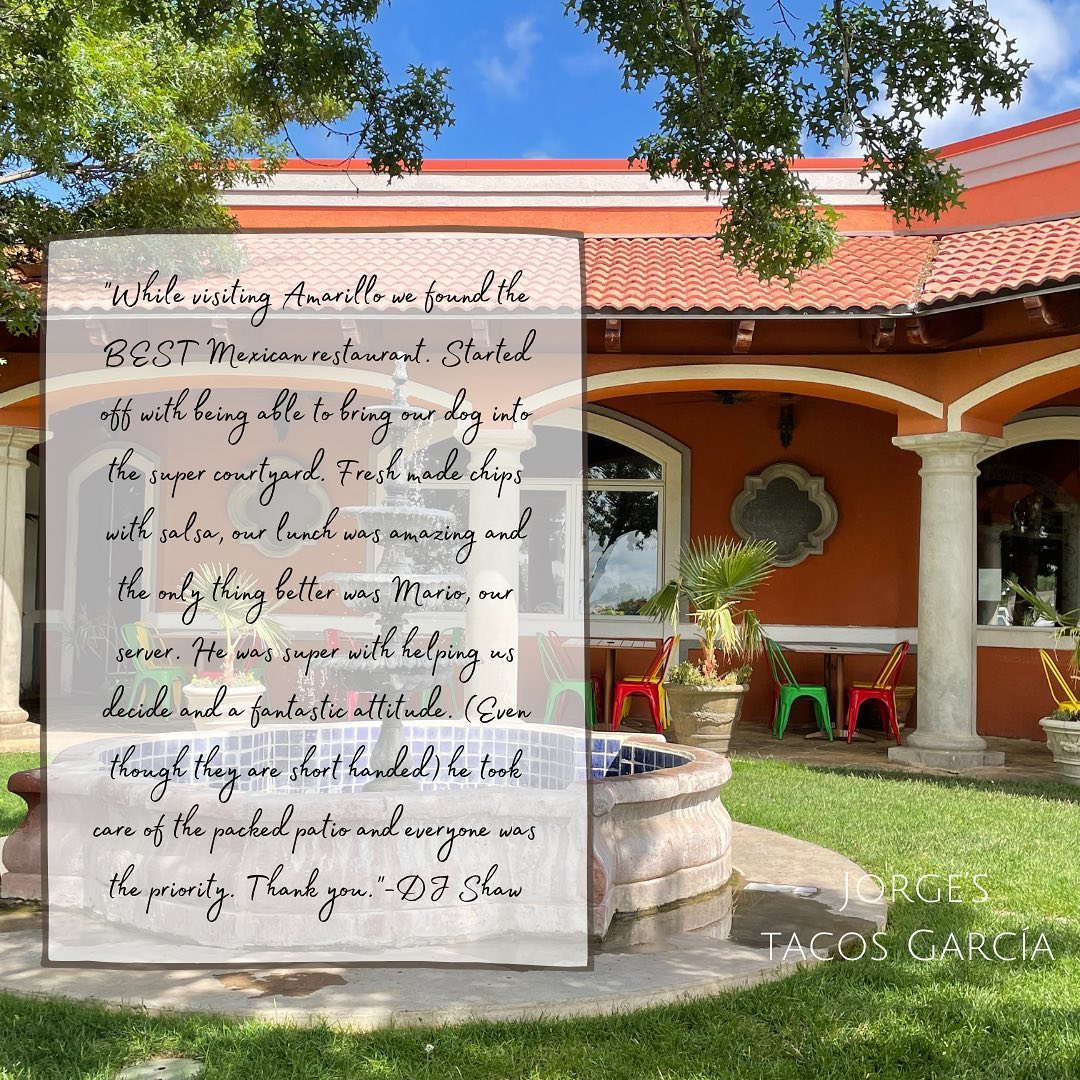 "While visiting Amarillo we found the
BEST Mexican restaurant. Started
off with being able to bring our dog into
the super courtyard. Fresh made chips
with salsa, our lunch was amazing and
the only thing better was Mario, our
server. He was super with helping us
decide and a fantastic attitude. (Even
though they are short handed) he took
care of the packed patio and everyone was
the priority. Thank you."-DJ Shaw
JORGE'S
TACOS GARCÍA